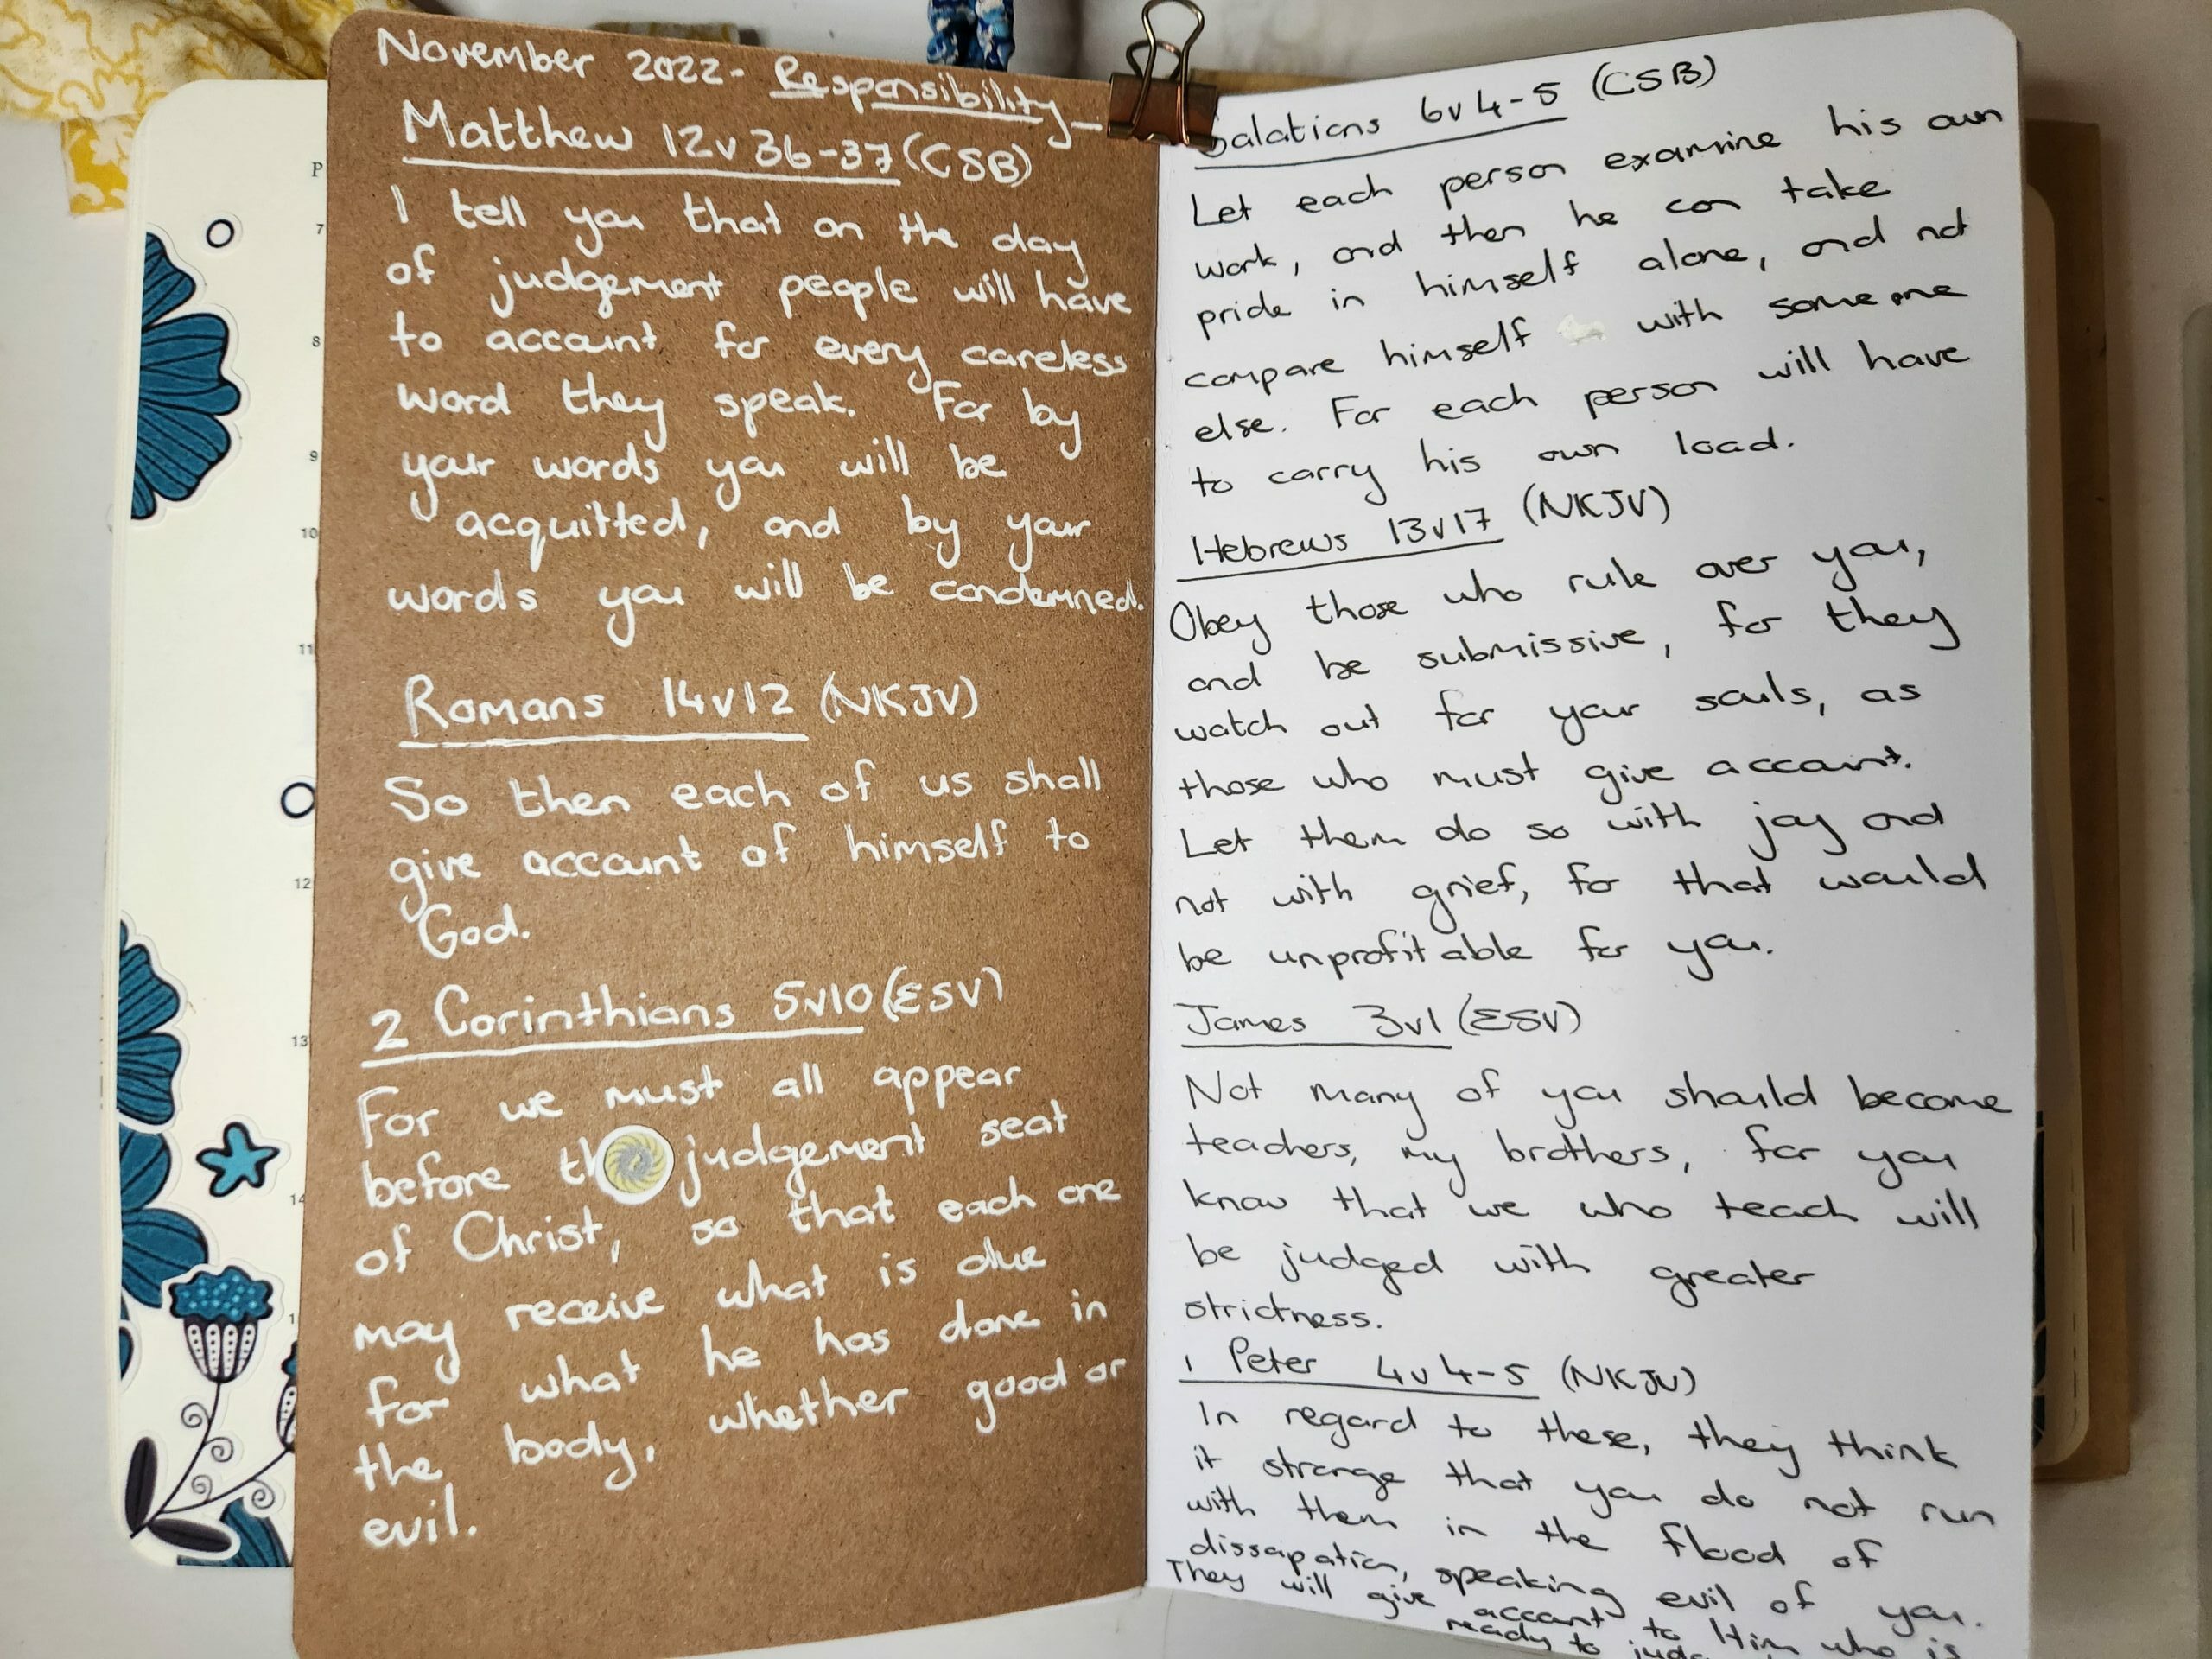 November 2022 - Responsibility -
Matthew 12v36-37 (CSB)
I tell you that on the day
of judgement people will have
to account for every careless
word they speak. For by
your words you will be
acquitted, and by your
words you will be condemned.
Romans 14v12 (NKJV)
So then each of us shall
give account of himself to
God.
2 Corinthians 5v10 (ESV)
For we must all appear
before judgement seat
of Christ, so that each one
may receive what is due
for what he has done in
the body, whether good or
evil.
Galatians 6v4-5 (CSB)
Let each person examine his own
work, and then he can take
pride in himself alone, and not
compare himself with someone
else. For each person will have
to carry his own load.
Hebrews 13v17 (NKJV)
Obey those who rule over you,
and be submissive, for they
watch out for your souls, as
those who must give account.
Let them do so with joy and
not with grief, for that would
be unprofitable for you.
James 3v1 (ESV)
Not many of you should become
teachers, my brothers, for you
know that we who teach will
be judged with greater
strictness.
1 Peter 4v4-5 (NKJV)
In regard to these, they think
it strange that you do not run
with them in the flood of
dissapation, speaking evil of you.
They will give account to Him who is
ready to
P
7
8
9
10
11
12
13
14